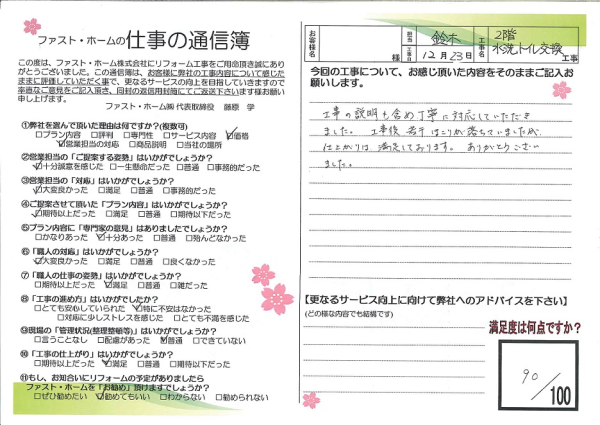 ファスト・ホームの仕事の通信簿
この度は、ファスト・ホーム株式会社にリフォーム工事をご用命頂き誠にあり
がとうございました。この通信簿は、お客様に弊社の工事内容について感じた
ままに評価していただく事で、更なるサービスの向上を目指していきますので
率直なご意見をご記入頂き、同封の返信用封筒にてご返送下さいます様お願い
申し上げます。
ファスト・ホーム㈱ 代表取締役 藤原 学
①弊社を選んで頂いた理由は何ですか?(複数可)
□プラン内容 □評判 □専門性 □サービス内容 ☑価格
☑営業担当の対応 □商品説明 □当社の場所
②営業担当の「ご提案する姿勢」はいかがでしょうか?
☑十分誠意を感じた □一生懸命だった □普通 □事務的だった
③営業担当の「対応」はいかがでしょうか?
☑大変良かった □満足 □普通 □事務的だった
④ご提案させて頂いた「プラン内容」はいかがでしょうか?
☑期待以上だった □満足 □普通 □期待以下だった
⑤プラン内容に「専門家の意見」はありましたでしょうか?
□かなりあった ☑十分あった □普通 □殆んどなかった
⑥「職人の対応」はいかがでしょうか?
☑大変良かった □満足 □普通 □良くなかった
⑦「職人の仕事の姿勢」はいかがでしょうか?
□期待以上だった ☑満足 □普通 □雑だった
⑧「工事の進め方」はいかがでしたか?
□とても安心していられた ☑特に不安はなかった
□対応に少しストレスを感じた □とても不満を感じた
⑨現場の「管理状況(整理整頓等)」はいかがでしょうか?
□言うことなし □配慮があった ☑普通 □できていない
⑩「工事の仕上がり」はいかがでしょうか?
□期待以上だった ☑満足 □普通 □期待以下だった
⑪もし、お知合いにリフォームの予定がありましたら
ファスト・ホームを「お勧め」頂けますでしょうか?
□ぜひ勧めたい ☑勧めてもいい □わからない □勧められない
お客様名 様
担当 鈴木
工事日 12月23日
工事名 2階 水洗トイレ交換 工事
今回の工事について、お感じ頂いた内容をそのままご記入お
願いします。
工事の説明も含め丁寧に対応していただき
ました。工事後 若干 ほこりが落ちていましたが、
仕上がりは 満足しております。ありがとうござい
ました。
【更なるサービス向上に向けて弊社へのアドバイスを下さい】
(どの様な内容でも結構です)
満足度は何点ですか?
90/100